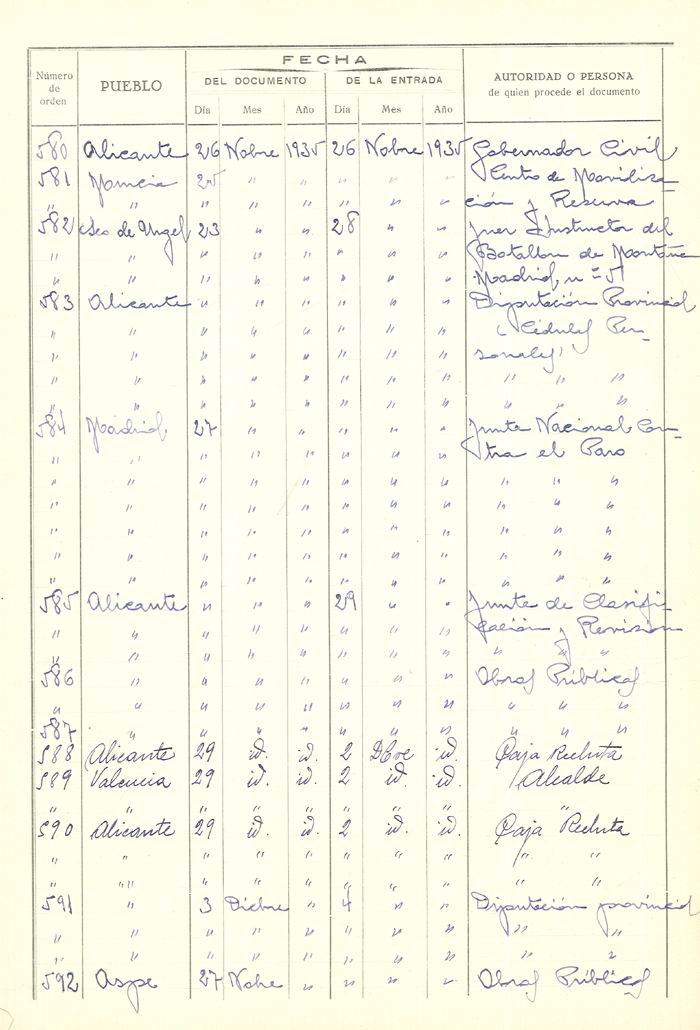 FECHA
Número de orden PUEBLO DEL DOCUMENTO DE LA ENTRADA AUTORIDAD O PERSONA de quien procede el documento
Día Mes Año Día Mes Año
580 Alicante 26 Nobre 1935 26 Nobre 1935 Gobernador Civil
581 Murcia 25 " " " " " Centro de Moviliza-
" " " " " " " " ción y Reserva
582 Seo de Urgel 23 " " 28 " " Juez Instructor del
" " " " " " " " Batallon de Montaña
" " " " " " " " Madrid, nº 5
583 Alicante " " " " " " Diputación Provincial
" " " " " " " " (Cédulas Per-
" " " " " " " " sonales)
" " " " " " " " " " "
" " " " " " " " " " "
584 Madrid. 27 " " " " " Junta Nacional Con-
" " " " " " " " tra el Paro
" " " " " " " " " " "
" " " " " " " " " " "
" " " " " " " " " " "
" " " " " " " " " " "
" " " " " " " " " " "
585 Alicante " " " 29 " " Junta de Clasifi-
" " " " " " " " cación y Revisión
" " " " " " " " " " "
586 " " " " " " " Obras Públicas
" " " " " " " " " " "
587 " " " " " " " " " "
588 Alicante 29 id. id. 2 Dbre id. Caja Recluta
589 Valencia 29 id. id. 2 id id. Alcalde
" " " " " " " " "
590 Alicante 29 id. id. 2 id. id. Caja Recluta
" " " " " " " " " "
" " " " " " " " " "
591 " 3 Dicbre " 4 " " Diputación provincial
" " " " " " " " " "
" " " " " " " " " "
592 Aspe 27 Nobre " " " " Obras Públicas